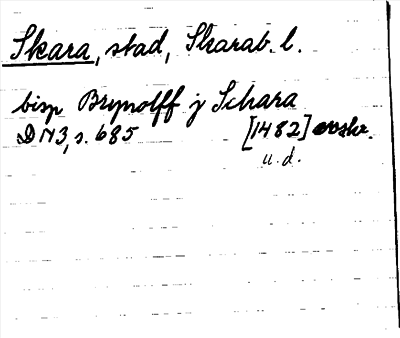 Skara, stad, Skarab. l.
bisp Brynolff j Schara
DN 3, s. 685 [1482] avskr.
u. d.